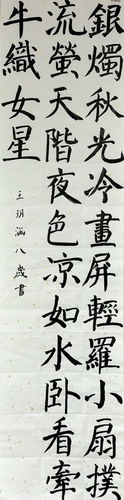 銀燭秋光冷畫屏輕羅小扇撲
流螢天階夜色凉如水卧看牽
牛織女星
王玥涵八歲書